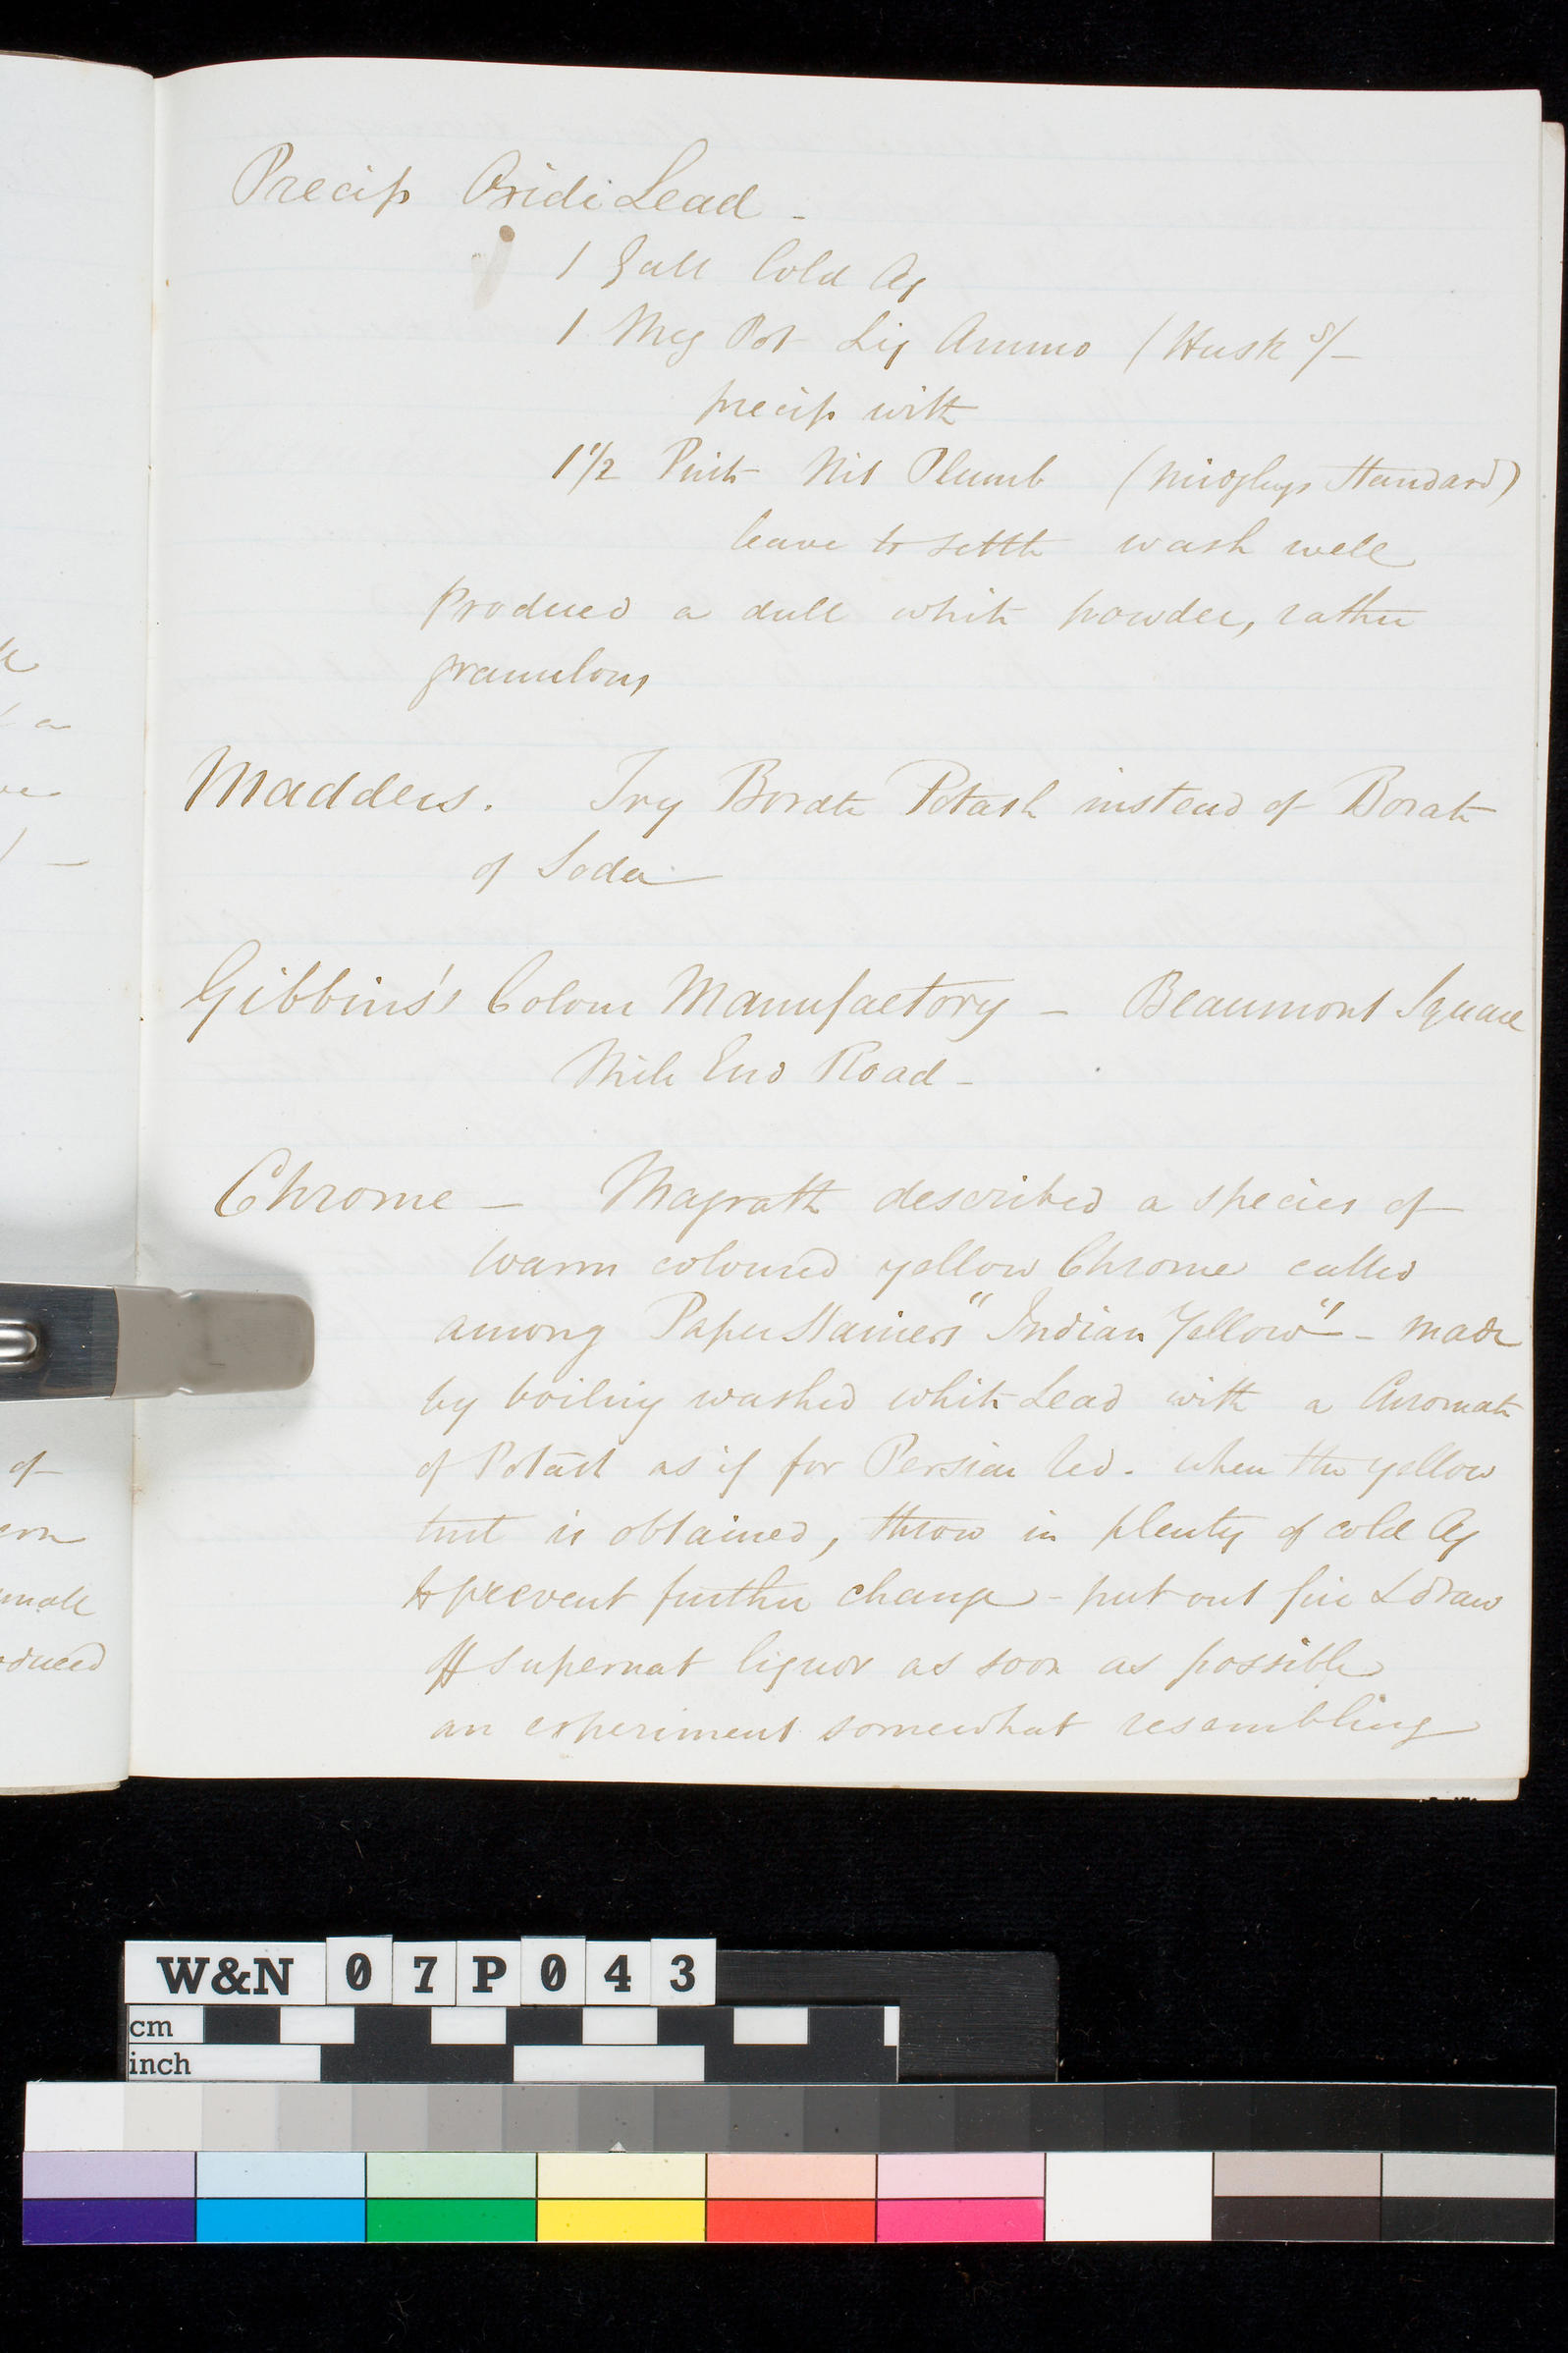 Precip Oxide Lead -
1 Gall Cold Aq
1 Meg Pot Liq Ammo (Husk 8/-
precip with
1 1/2 Pints Nit Plumb ( Standard)
leave to settle wash well
produced a dull white powder, rather
granulous
Madders. Try Borate Potash instead of Borate
of Soda
Gibbins's Colour Manufactory - Beaumont Square
Mile End Road -
Chrome - Magrath described a species of
warm coloured yellow Chrome called
among Paper Stainers "Indian Yellow" - made
by boiling washed white Lead with a Chromate
of Potash as if for Persian Red. when the yellow
tint is obtained, throw in plenty of cold Aq
to prevent further change - put out fire & draw
off supernat liquor as soon as possible
an experiment somewhat resembling
a
of
small
oduced
W&N 07P043
cm
inch